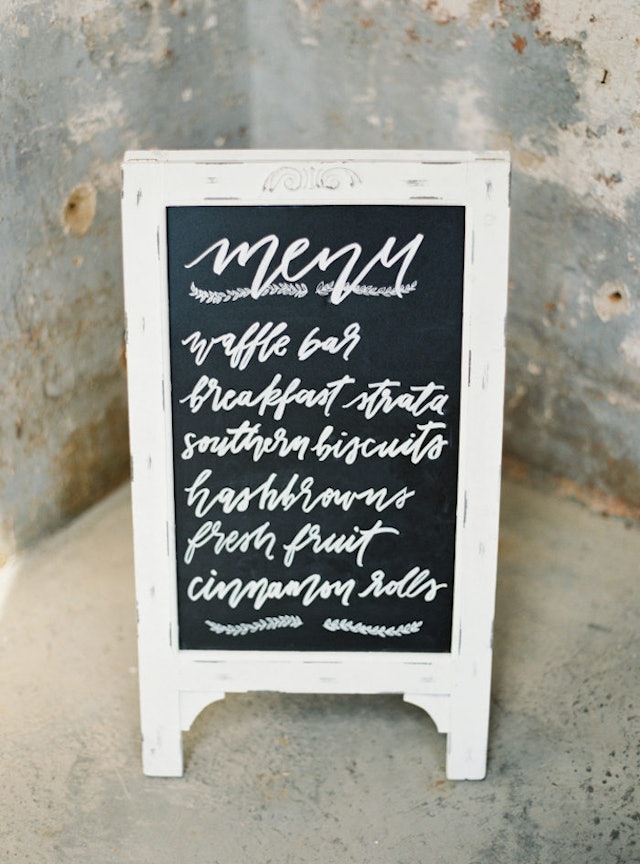 menu
waffle bar
breakfast strata
southern biscuits
hashbrowns
fresh fruit
cinnamon rolls